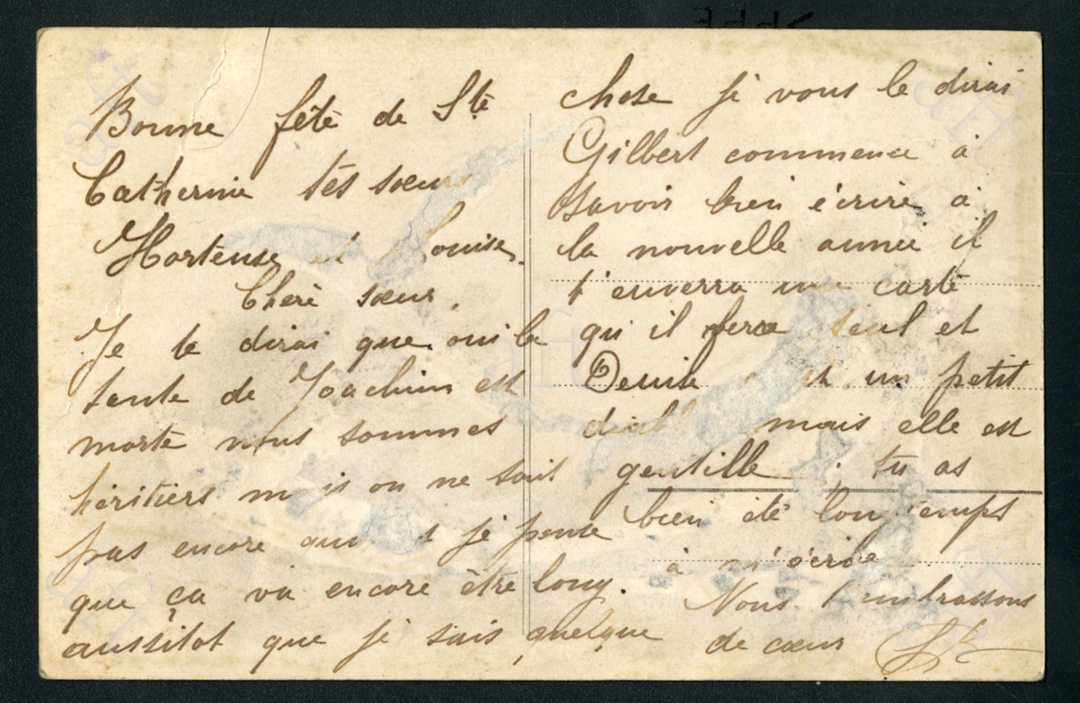 Bonne fête de Ste
Catherine tes sœurs
Hortense et Louise.
Chère sœur.
Je te dirai que oui la
tante de Joachim est
morte nous sommes
héritiers mais on ne sait
pas encore je pense
que ça va encore être long.
aussitot que je sais quelque
chose je vous le dirai
Gilbert commence à
savoir bien écrire à
la nouvelle année il
t'enverra une carte
qu'il fera seul et
Denise est un petit
diable mais elle est
gentille. tu as
bien été longtemps
à m'écrire
Nous t'embrassons
de cœur